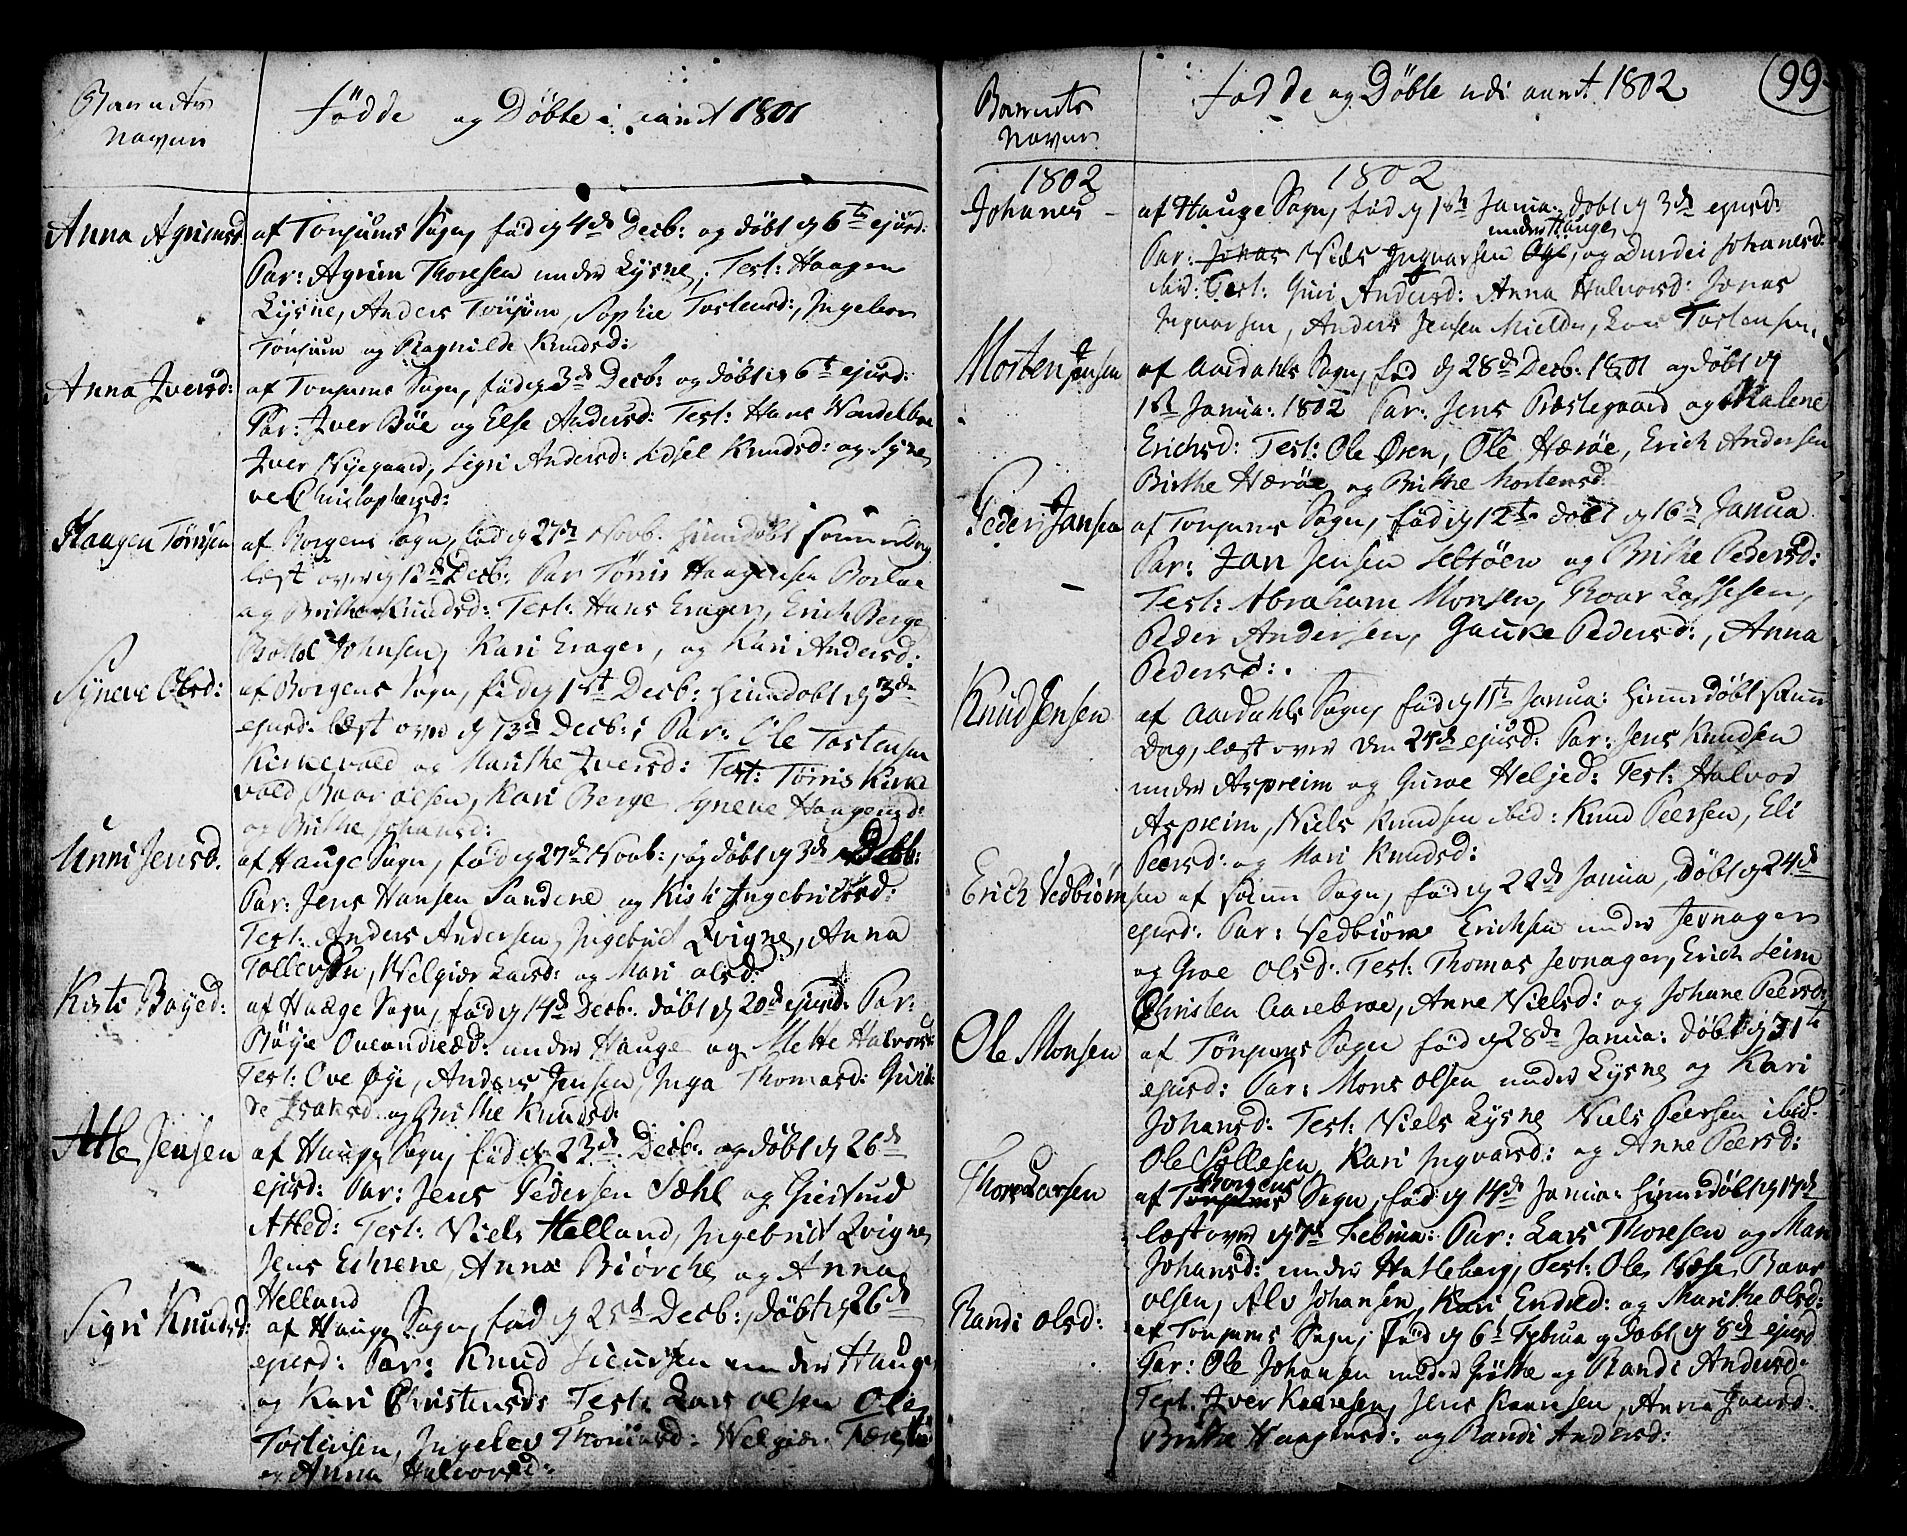 Barnets
Navn
Födde og Döbte i aaret 1801
Anna Agrimsd
af Tonjums Sogn, föd d 4de Decb: og döbt d 6te ejusd:
Par: Agrim Thoresen under Lysne; Test: Haagen
Lysne, Anders Tönjum, Sophie Tostensd:, Ingebor
Tönjum og Ragnilde Knudsd:
Anna Iversd:
af Tonjums Sogn, föd d 3de Decb: og döbt d 6te ejusd:
Par: Iver Böe og Else Andersd: Test: Hans Wendelboe
Iver Nyegaard, Sigri Andersd: Lidsel Knudsd: og Syne
ve Christophersd:
Haagen Törrisen
af Borgens Sogn, föd d 27de Novb. hiemdöbt samme dag
læst over d 12de Decb: Par Törris Haagensen Borlae
og Brithe Knudsd: Test: Hans Erager, Erich Berge
Johnsen, Kari Erager, og Kari Andersd:
Syneve Olsd:
af Borgens Sogn, föd d 1ste Decb: hiemdöbt d 3de
ejusd: læst over d 13de Decb: Par: Ole Tostensen
Kirkevold og Marithe Iversd: Test: Törris Kirke
vold Baar Olsen, Kari Berge Syneve Haagensd:
og Brithe Johansd:
Unni Jensd.
af Hauge Sogn, föd d 27de Novb:, og döbt d 3de Decb:
Par: Jens Hansen Sandene og Kisti Ingebrictsd:
Test: Anders Andersen, Ingebrict Qvigne, Anna
Tollersdn, Welgiær Larsd: og Mari Olsd:
Kisti Boyed:
af Hauge Sogn, föd d 14de Decb. döbt d 20de ejusd: Par:
Böye under Hauge og Mette Halvorsd:
Test: Ove Öyi, Anders Jensen, Inga Thomasd: Guri
de Isaksd. og Brithe Knudsd:
Atle Jensen
af Hauge Sogn, föd d 23de Decb: og döbt d 26de
ejusd: Par: Jens Pedersen Sæhl og Giertrud
Atled: Test: Niels Helland, Ingebrict Qvigne,
Jens Echrene, Anna Biörche og Anna
Helland
Sigri Knudsd:
af Hauge Sogn, föd d 25de Decb:, döbt d 26de
ejusd: Par: Knud Siursen under Hauge
og Kari Christensd: Test: Lars Olsen Ole
Tostensen, Ingelev Thomasd: Welgiær
og Anna Halvorsd:
99
Barnets
Navn
Födde og Döbte udi aaret 1802
1802
1802
Johanes -
af Hauge Sogn, föd d 1ste Janua: döbt d 3de ejusd:
under Hauge
Par: Jonas Niels Ingvarsen Öye, og Durdei Johanesd:
ibid: Test: Guri Andersd: Anna Halvorsd: Jonas
Ingvarsen, Anders Jensen Mieldte, Lars Tostensen.
Morten Jensen
af Aardahls Sogn, föd d 28de Decb: 1801 og döbt d
1ste Janua: 1802 Par: Jens Præstegaard og Malene
Erichsd: Test: Ole Ören, Ole Hæröe, Erich Andersen
Birthe Hæröe og Brithe Mortensd:
Peder Jansen
af Tonjums Sogn, föd d 12te döbt d 16de Janua
Par: Jan Jensen Seltöen og Brithe Pedersd:
Test: Abraham Monsen, Roar Lassesen,
Peder Andersen, Gauke Pedersd:, Anna
Pedersd:.
Knud Jensen
af Aardahls Sogn, föd d 11te Janua: hiemdöbt samme
Dag, læst over den 25de ejusd: Par: Jens Knudsen
under Aspreim og Guroe Heljed: Test: Halvor
Aspreim, Niels Knudsen ibid: Knud Peersen, Eli
Peersd: og Mari Knudsd:
Erich Vedbiörnsen
af samme Sogn, föd d 22de Janua, döbt d 24de
ejusd: Par: Vedbiörn Erichsen under Jevnager
og Groe Olsd: Test: Thomas Jevnager, Erich Leim
Christen Aarebroe, Anne Nielsd: og Johane Peersd:
Ole Monsen
af Tönjums Sogn föd d 28de Janua: döbt d 31te
ejusd: Par: Mons Olsen under Lysne og Kari
Johansd: Test: Niels Lysne Niels Peersen ibid.
Ole Sillesen Kari Ingvarsd: og Anne Peersd:
Thore Larsen
Borgens
af Tonjums Sogn, föd d 14de Janua: hiemdöbt d 17de
læst over d 7de Februa: Par: Lars Thoresen og Mari
Johansd: under Hatleberg, Test: Ole Baar
Olsen, Alv Johansen, Kari Endred: og Marithe Olsd:
Randi Olsd:
af Tonjums Sogn, föd d 6te Februa og döbt d 8de ejusd
Par: Ole Johansen under Gröthe og Randi Andersd:
Test: Iver Kaaresen, Jens Kaaresen, Anna Iversd:
Brithe Haagensd: og Randi Andersd: